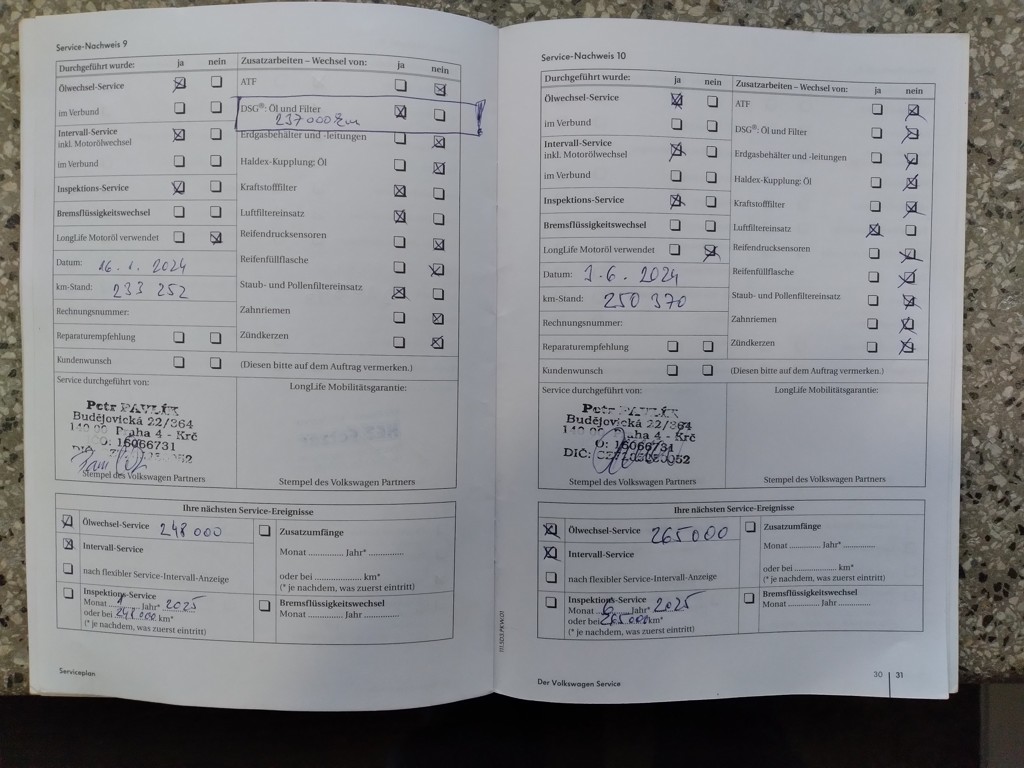 Service-Nachweis 9
Durchgeführt wurde: ja nein
Ölwechsel-Service
im Verbund
Intervall-Service
inkl. Motorölwechsel
im Verbund
Inspektions-Service
Bremsflüssigkeitswechsel
LongLife Motoröl verwendet
Datum: 16. 1. 2024
km-Stand: 233 252
Rechnungsnummer:
Reparaturempfehlung
Kundenwunsch
Zusatzarbeiten – Wechsel von: ja nein
ATF
DSG®: Öl und Filter
237 000 km
Erdgasbehälter und -leitungen
Haldex-Kupplung: Öl
Kraftstofffilter
Luftfiltereinsatz
Reifendrucksensoren
Reifenfüllflasche
Staub- und Pollenfiltereinsatz
Zahnriemen
Zündkerzen
(Diesen bitte auf dem Auftrag vermerken.)
Service durchgeführt von:
Petr PAVLÍK
Budějovická 22/364
Praha 4 - Krč
16066731
Stempel des Volkswagen Partners
LongLife Mobilitätsgarantie:
Stempel des Volkswagen Partners
Ihre nächsten Service-Ereignisse
Ölwechsel-Service 248 000
Intervall-Service
nach flexibler Service-Intervall-Anzeige
Inspektions-Service
Monat 1 Jahr* 2025
oder bei 248 000 km*
(* je nachdem, was zuerst eintritt)
Zusatzumfänge
Monat .............. Jahr* ..............
oder bei .................... km*
(* je nachdem, was zuerst eintritt)
Bremsflüssigkeitswechsel
Monat .............. Jahr ..............
Serviceplan
Service-Nachweis 10
Durchgeführt wurde: ja nein
Ölwechsel-Service
im Verbund
Intervall-Service
inkl. Motorölwechsel
im Verbund
Inspektions-Service
Bremsflüssigkeitswechsel
LongLife Motoröl verwendet
Datum: 3. 6. 2024
km-Stand: 250 370
Rechnungsnummer:
Reparaturempfehlung
Kundenwunsch
Zusatzarbeiten – Wechsel von: ja nein
ATF
DSG®: Öl und Filter
Erdgasbehälter und -leitungen
Haldex-Kupplung: Öl
Kraftstofffilter
Luftfiltereinsatz
Reifendrucksensoren
Reifenfüllflasche
Staub- und Pollenfiltereinsatz
Zahnriemen
Zündkerzen
(Diesen bitte auf dem Auftrag vermerken.)
Service durchgeführt von:
Petr PAVLÍK
Budějovická 22/364
Praha 4 - Krč
16066731
DIČ:
Stempel des Volkswagen Partners
LongLife Mobilitätsgarantie:
Stempel des Volkswagen Partners
Ihre nächsten Service-Ereignisse
Ölwechsel-Service 265000
Intervall-Service
nach flexibler Service-Intervall-Anzeige
Inspektions-Service
Monat 6 Jahr* 2025
oder bei 265000 km*
(* je nachdem, was zuerst eintritt)
Zusatzumfänge
Monat .............. Jahr* ..............
oder bei .................... km*
(* je nachdem, was zuerst eintritt)
Bremsflüssigkeitswechsel
Monat .............. Jahr ..............
Der Volkswagen Service
30 31